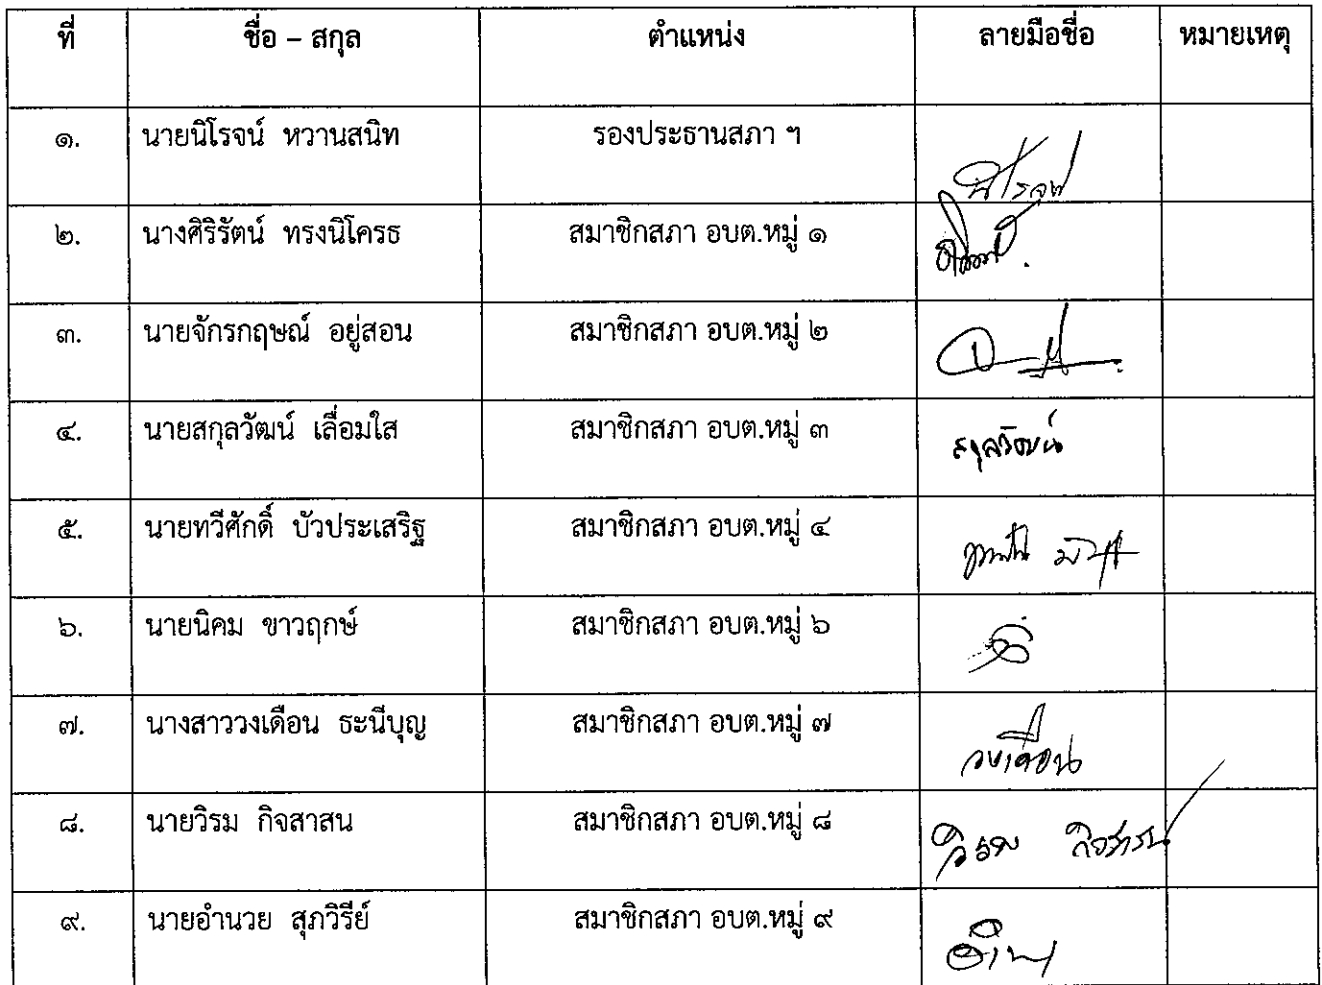 ที่ ชื่อ – สกุล ตำแหน่ง ลายมือชื่อ หมายเหตุ
๑. นายนิโรจน์ หวานสนิท รองประธานสภา ฯ นิโรจน์
๒. นางศิริรัตน์ ทรงนิโครธ สมาชิกสภา อบต.หมู่ ๑
๓. นายจักรกฤษณ์ อยู่สอน สมาชิกสภา อบต.หมู่ ๒
๔. นายสกุลวัฒน์ เลื่อมใส สมาชิกสภา อบต.หมู่ ๓ สกุลวัฒน์
๕. นายทวีศักดิ์ บัวประเสริฐ สมาชิกสภา อบต.หมู่ ๔
๖. นายนิคม ขาวฤกษ์ สมาชิกสภา อบต.หมู่ ๖
๗. นางสาววงเดือน ธะนีบุญ สมาชิกสภา อบต.หมู่ ๗ วงเดือน
๘. นายวิรม กิจสาสน สมาชิกสภา อบต.หมู่ ๘ วิรม กิจสาสน
๙. นายอำนวย สุภวิรีย์ สมาชิกสภา อบต.หมู่ ๙